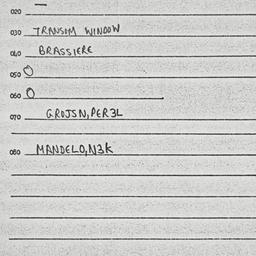 020 —
030 TRANSOM WINDOW
040 BRASSIERE
050 O
060 O
070 GROJSN, PER3L
080 MANDELO, N3K